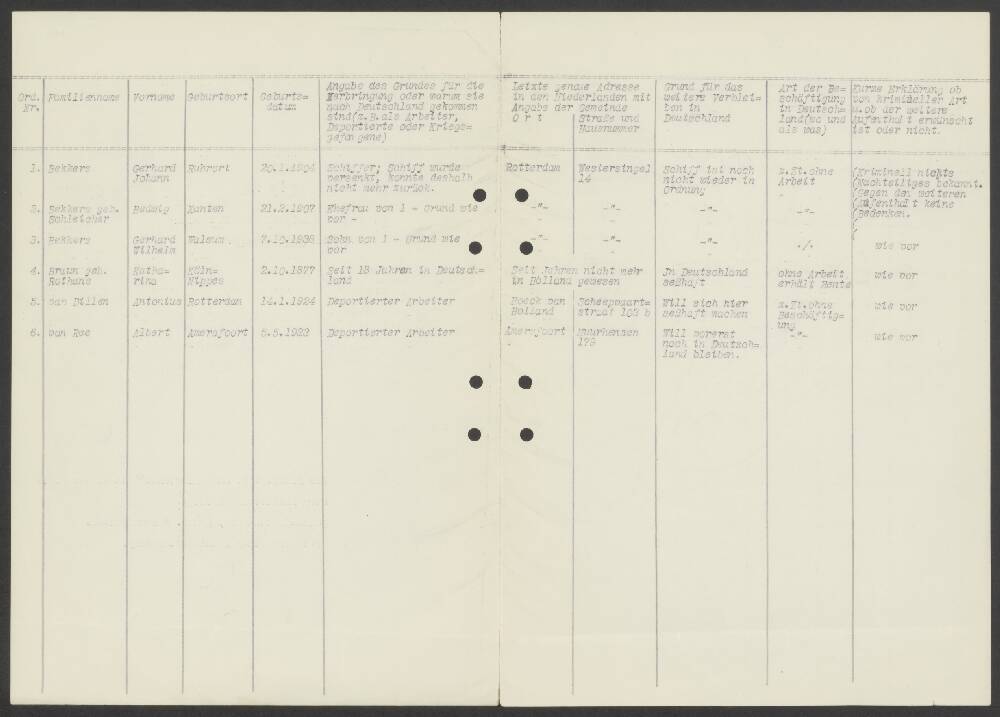 Ord. Nr. Familienname Vorname Geburtsort Geburts=
datum
Angabe des Grundes für die
Verbringung oder warum sie
nach Deutschland gekommen
sind(z.B.als Arbeiter,
Deportierte oder Kriegs=
gefangene)
Letzte genaue Adresse
in den Niederlanden mit
Angabe der Gemeinde
O r t
Straße und
Hausnummer
Grund für das
weitere Verblei=
ben in
Deutschland
Art der Be=
schäftigung
in Deutsch=
land(wo und
als was)
Kurze Erklärung ob
von krimineller Art
u.ob der weitere
Aufenthalt erwünscht
ist oder nicht.
1. Bekkers
Gerhard
Johann
Ruhrort
29.1.1904
Schiffer; Schiff wurde
versenkt, konnte deshalb
nicht mehr zurück.
Rotterdam
Westersingel
14
Schiff ist noch
nicht wieder in
Ordnung
z.Zt.ohne
Arbeit
(Kriminell nichts
(Nachteiliges bekannt.
(Gegen den weiteren
(Aufenthalt keine
(Bedenken.
2. Bekkers geb.
Schleicher
Hedwig
Xanten
21.2.1907
Ehefrau von 1 - Grund wie
vor -
-"-
-"-
-"-
-"-
3. Bekkers
Gerhard
Wilhelm
Walsum
7.10.1938
Sohn von 1 - Grund wie
vor
-"-
-"-
-"-
./.
wie vor
4. Braun geb.
Rothuns
Katha=
rina
Köln=
Nippes
2.10.1877
Seit 18 Jahren in Deutsch=
land
Seit Jahren nicht mehr
in Holland gewesen
Jn Deutschland
seßhaft
ohne Arbeit,
erhält Rente
wie vor
5. van Dillen
Antonius
Rotterdam
14.1.1924
Deportierter Arbeiter
Hoeck van
Holland
Scheepvaart=
straat 103 b
Will sich hier
seßhaft machen
z.Zt.ohne
Beschäftig=
ung
wie vor
6. van Ree
Albert
Amersfoort
5.5.1922
Deportierter Arbeiter
Amersfoort
179
Will vorerst
noch in Deutsch=
land bleiben.
-"-
wie vor